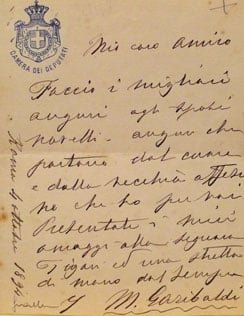 CAMERA DEI DEPUTATI
Mio caro Amico
Faccio i migliori
auguri agli sposi
novelli - auguri che
partono dal cuore
e dalla vecchia
no che ho per voi
Presentate i miei
omaggi alla Signora
ed una stretta
di mano dal sempre
M. Garibaldi
Roma 4 1894